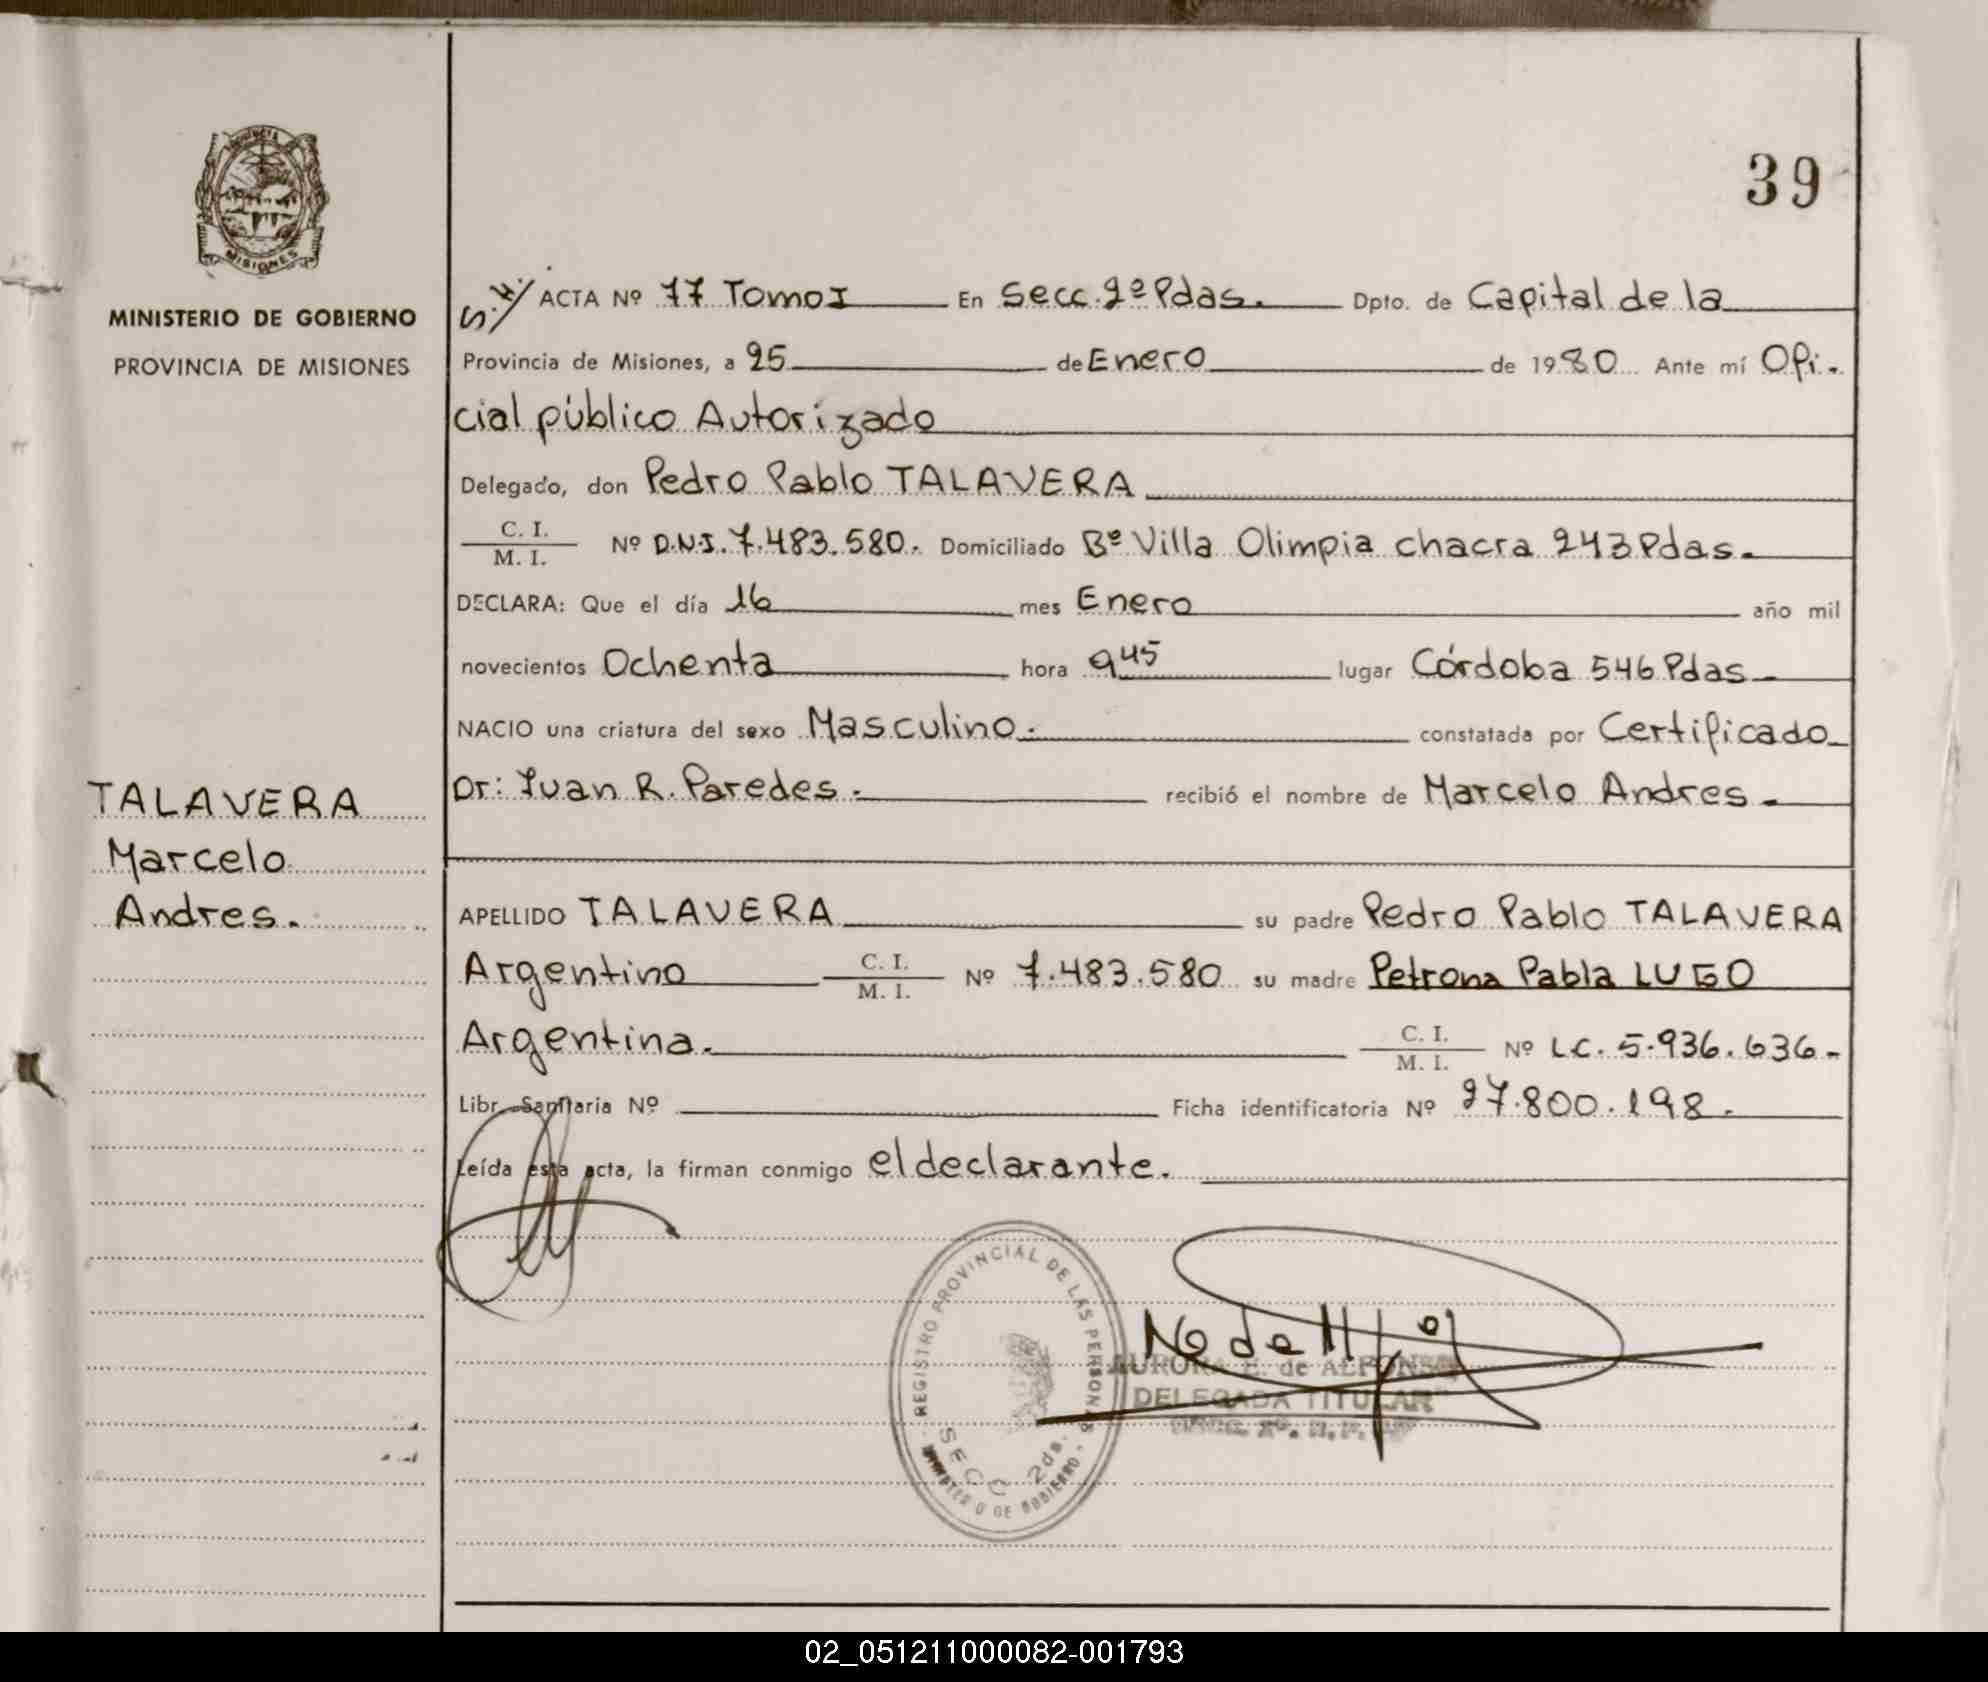 39
MINISTERIO DE GOBIERNO
PROVINCIA DE MISIONES
MISIONES
ACTA Nº 77 Tomo I En Secc. 2º Pdas. Dpto. de Capital de la
Provincia de Misiones, a 25 de Enero de 1980 Ante mí Ofi-
cial público Autorizado
Delegado, don Pedro Pablo TALAVERA
C. I.
M. I. Nº D.N.I. 7.483.580. Domiciliado Bº Villa Olimpia chacra 243 Pdas.
DECLARA: Que el día 16 mes Enero año mil
novecientos Ochenta hora 9 45 lugar Córdoba 546 Pdas
NACIO una criatura del sexo Masculino. constatada por Certificado
Dr: Juan R. Paredes. recibió el nombre de Marcelo Andres.
TALAVERA
Marcelo
Andres.
APELLIDO TALAVERA su padre Pedro Pablo TALAVERA
Argentino C. I. M. I. Nº 7.483.580 su madre Petrona Pabla LUGO
Argentina. C. I. M. I. Nº L.C. 5.936.636-
Libr. Sanitaria Nº Ficha identificatoria Nº 27.800.198.
Leída esta acta, la firman conmigo el declarante.
REGISTRO PROVINCIAL DE LAS PERSONAS
SECC 2da.
MINISTERIO DE GOBIERNO
AURORA E. de ALFONSO
DELEGADA TITULAR
02_051211000082-001793